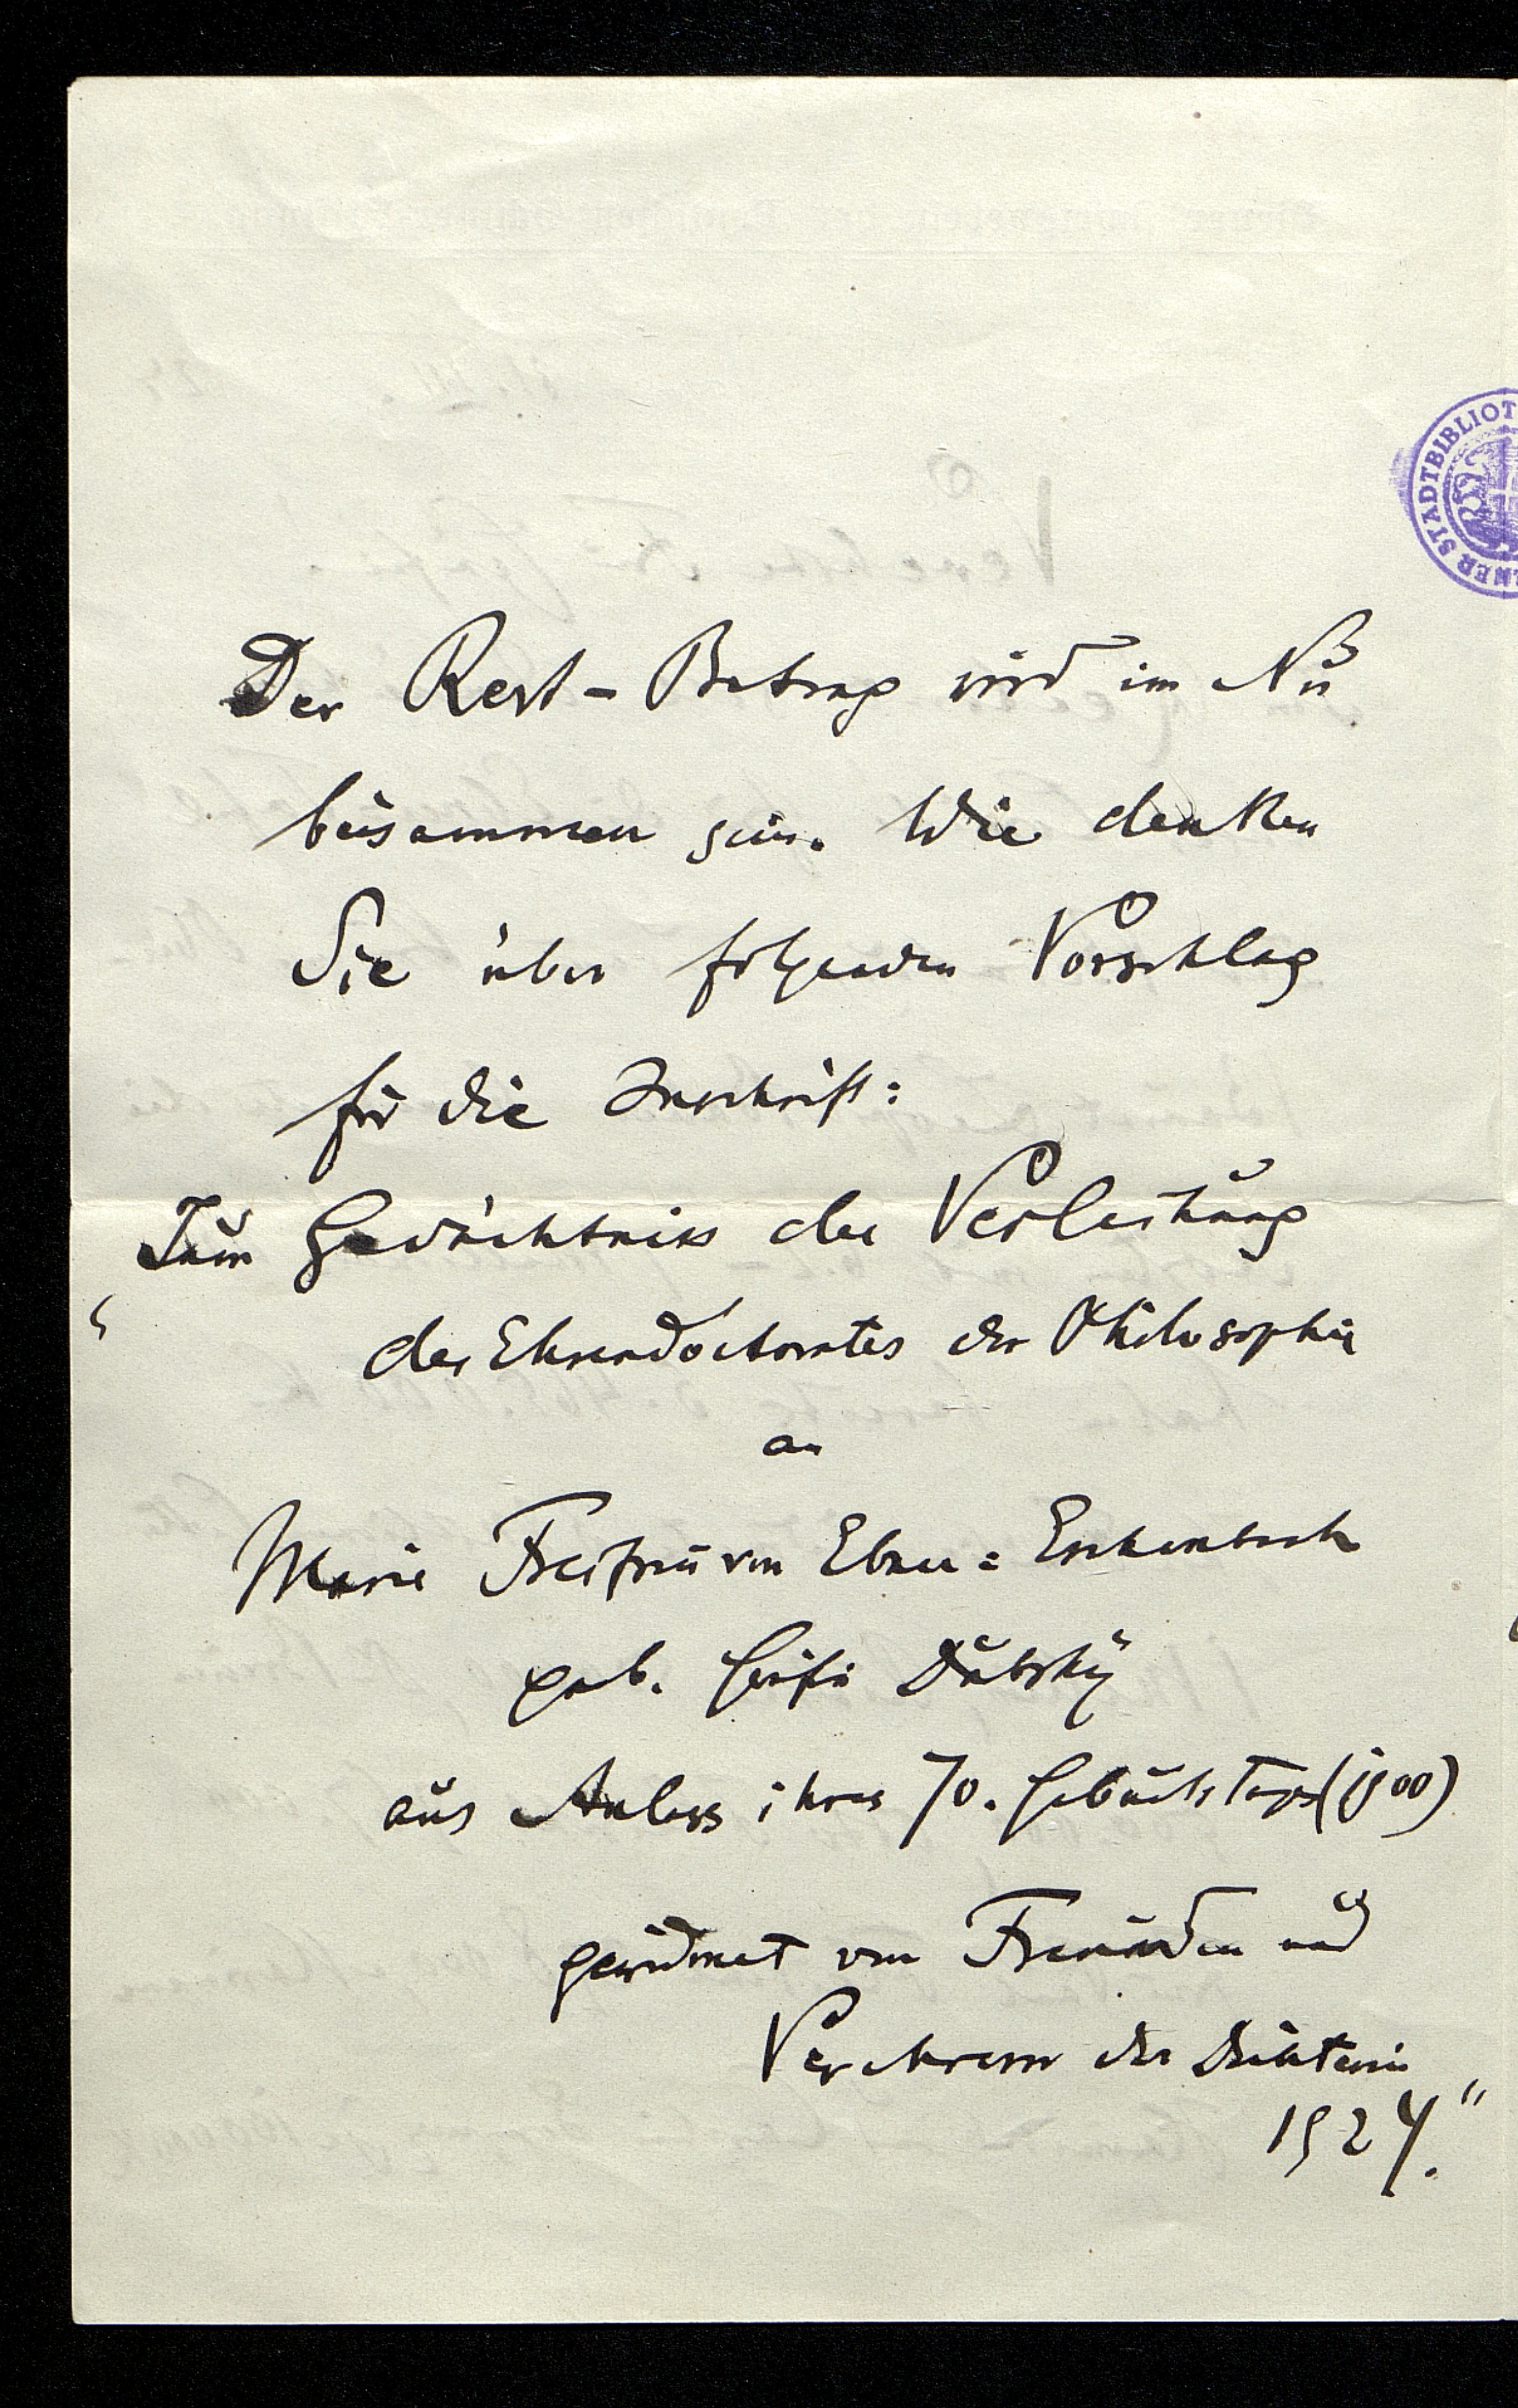 Der Rest-Betrag wird im Nu
beisammen sein. Wie denken
Sie über folgenden Vorschlag
für die Inschrift:
„Zum Gedächtniss der Verleihung
des Ehrendoctorates der Philosophie
an
Marie Freifrau von Ebner=Eschenbach
geb. Gräfin Dubsky
aus Anlass ihres 70. Geburtstages (1900)
gewidmet von Freunden und
Verehrern der Dichterin
1924."
STADTBIBLIOT